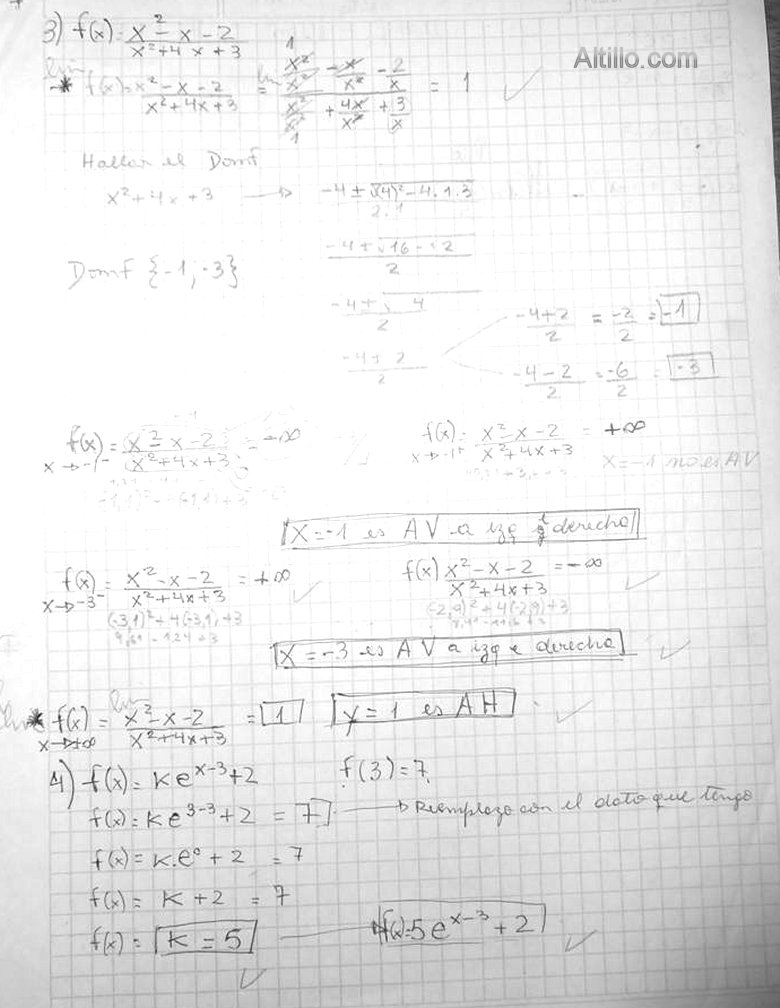 Altillo.com
3) f(x) = x² - x - 2 / x² + 4x + 3
lim f(x) = x² - x - 2 / x² + 4x + 3 = lim x²/x² - x/x² - 2/x / x²/x² + 4x/x² + 3/x = 1 ✓
Hallar el Domf
x² + 4x + 3 → -4 ± √(4)² - 4.1.3 / 2.1
-4 ± √16 - 12 / 2
Domf {-1; -3}
-4 ± √4 / 2
-4 ± 2 / 2
-4+2 / 2 = -2/2 = -1
-4-2 / 2 = -6/2 = -3
f(x) x→-1⁻ = x² - x - 2 / x² + 4x + 3 = -∞
f(x) x→-1⁺ = x² - x - 2 / x² + 4x + 3 = +∞
X = -1 no es AV
X = -1 es AV a izq y derecha
f(x) x→-3⁻ = x² - x - 2 / x² + 4x + 3 = +∞ ✓
(-3,1)² + 4(-3,1) + 3
9,61 - 12,4 + 3
f(x) x² - x - 2 / x² + 4x + 3 = -∞ ✓
(-2,9)² + 4(-2,9) + 3
8,41 - 11,6 + 3
X = -3 es AV a izq e derecha ✓
lim f(x) x→+∞ = lim x² - x - 2 / x² + 4x + 3 = 1 y = 1 es AH ✓
4) f(x) = k e^(x-3) + 2 f(3) = 7
f(x) = k e^(3-3) + 2 = 7 → Reemplazo con el dato que tengo
f(x) = k.e⁰ + 2 = 7
f(x) = k + 2 = 7
f(x) = k = 5 → f(x) = 5e^(x-3) + 2 ✓